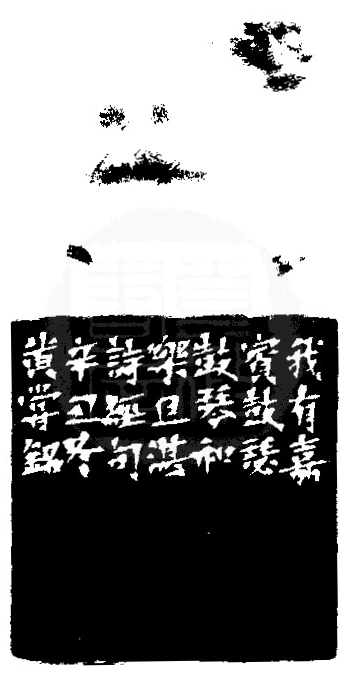 我有嘉
賓鼓瑟
鼓琴和
樂且湛
詩經句
辛丑冬
黃嘗銘